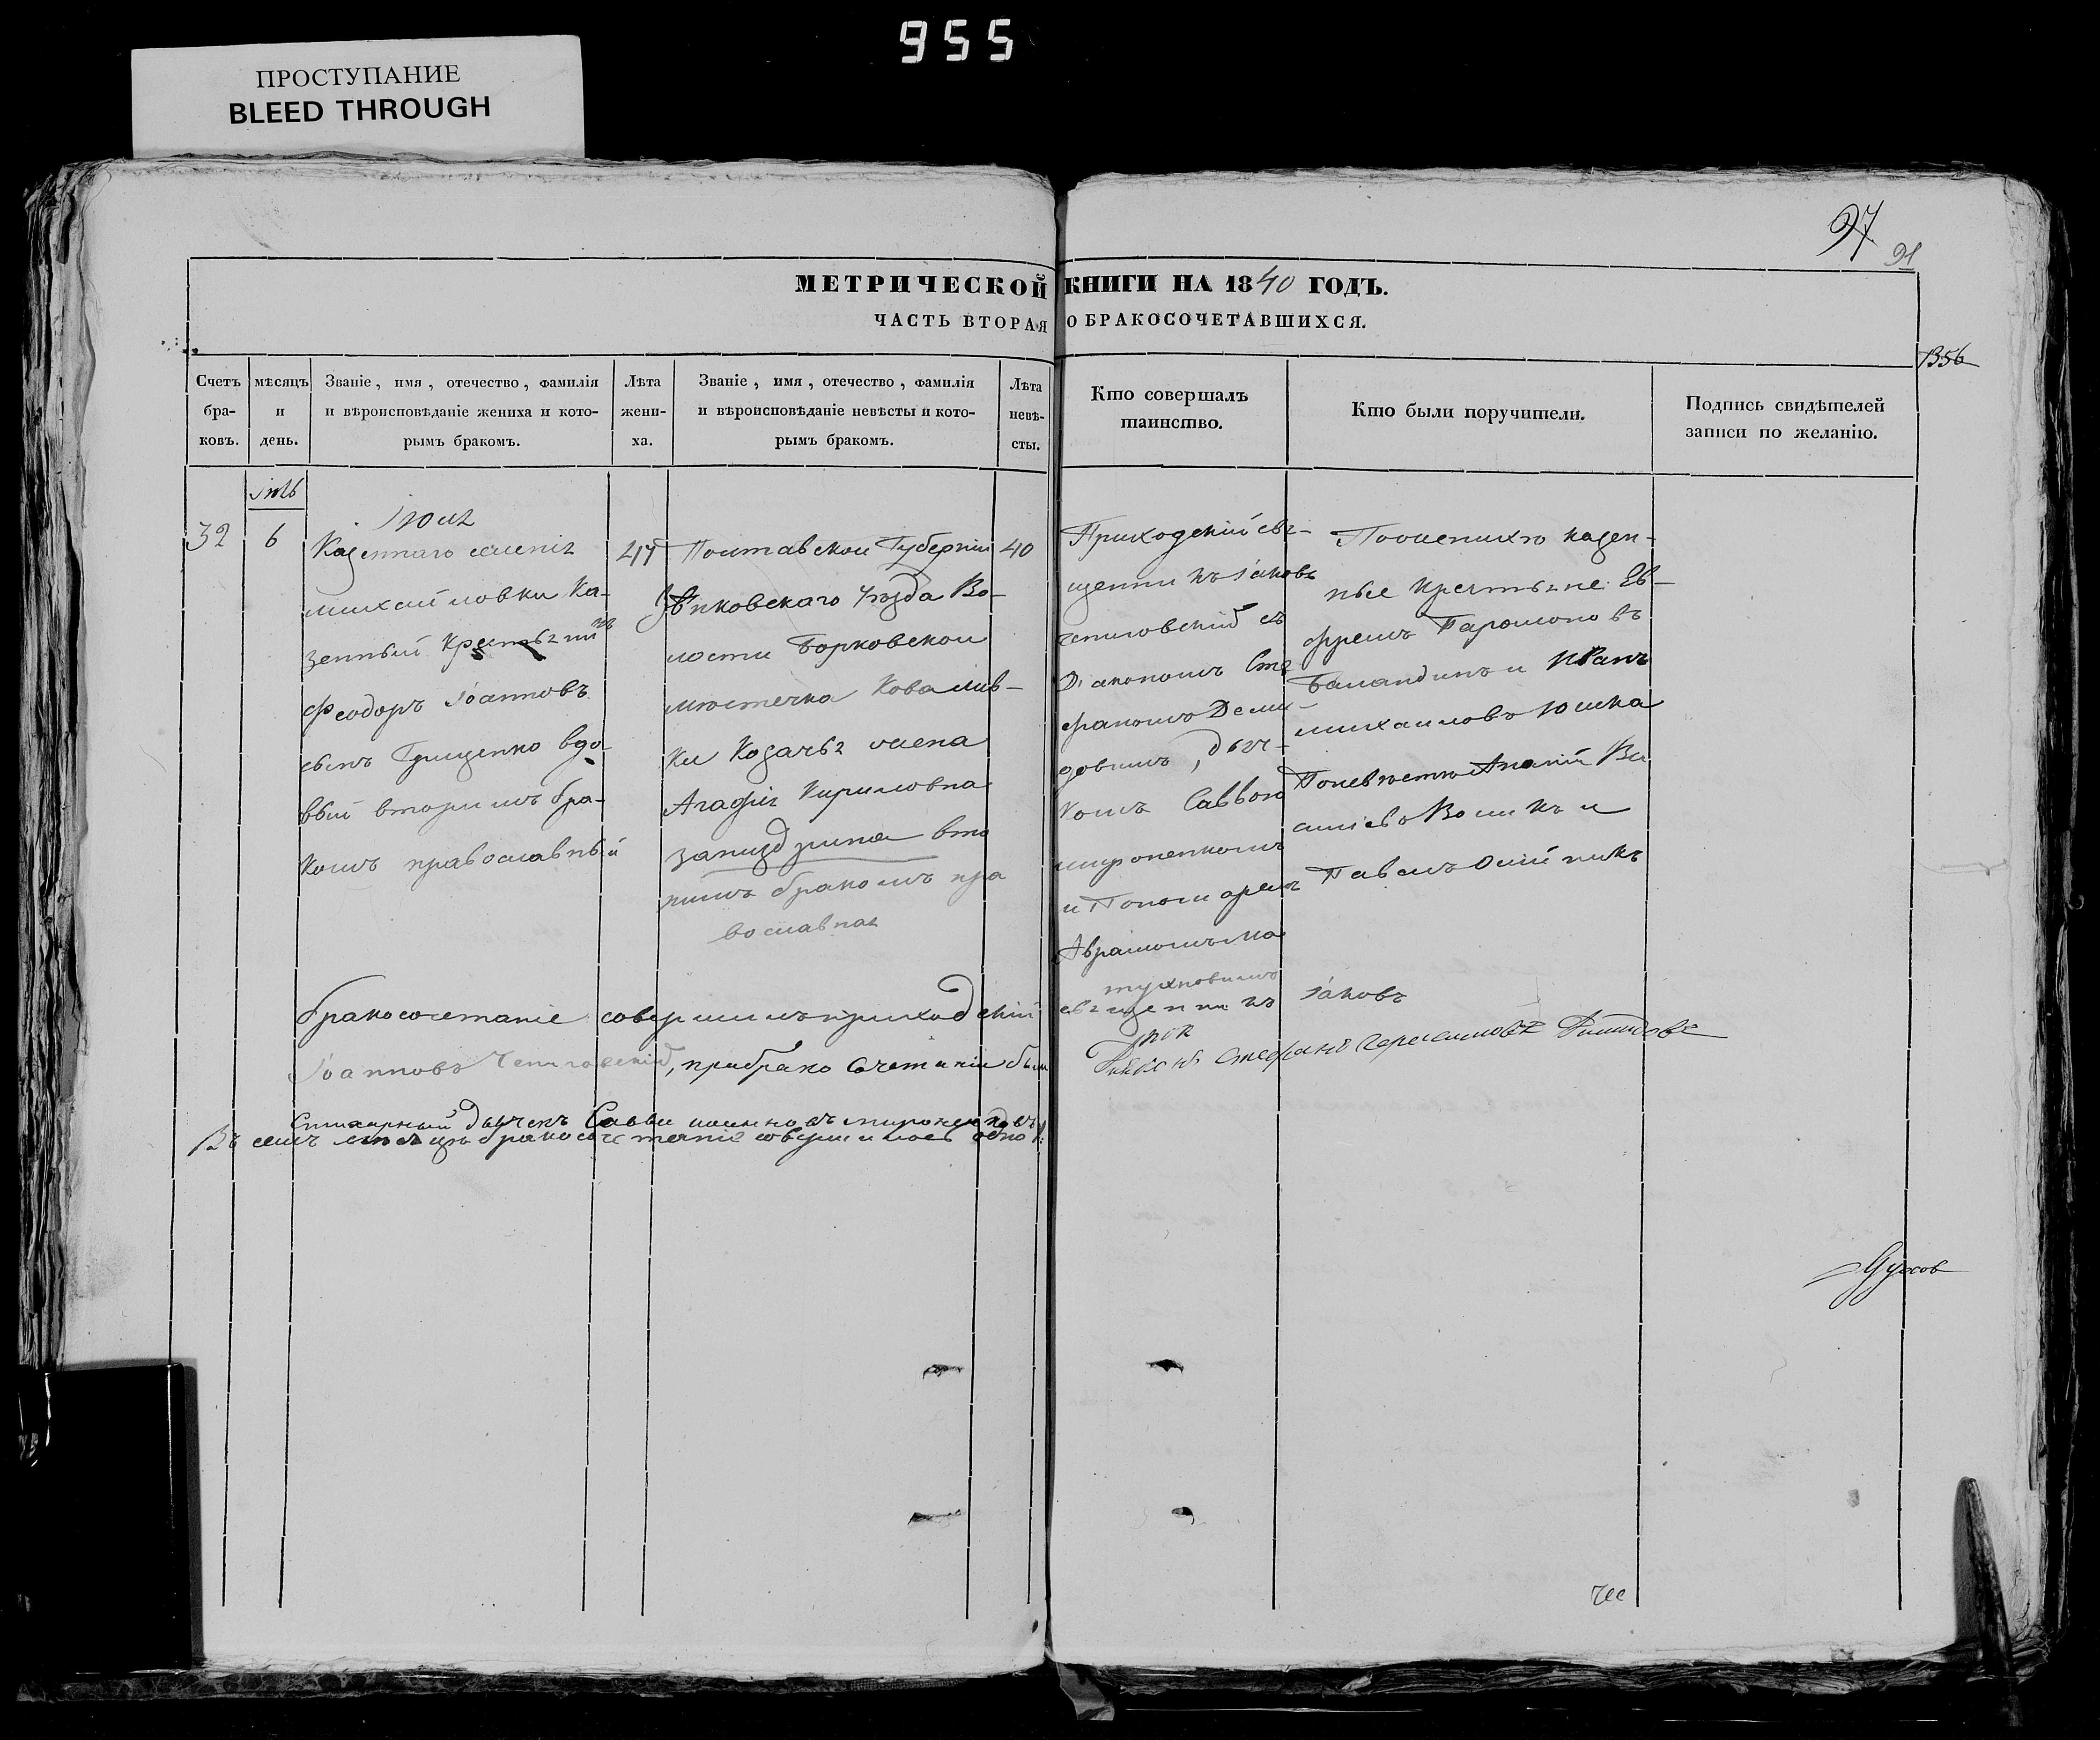 955
ПРОСТУПАНИЕ
BLEED THROUGH
97
91
МЕТРИЧЕСКОЙ КНИГИ НА 1840 ГОДЪ.
ЧАСТЬ ВТОРАЯ О БРАКОСОЧЕТАВШИХСЯ.
1356
Счетъ бра-ковъ.
мѣсяцъ и день.
Званіе, имя, отечество, фамилія
и вѣроисповѣданіе жениха и кото-
рымъ бракомъ.
Лѣта жени-ха.
Званіе, имя, отечество, фамилія
и вѣроисповѣданіе невѣсты и кото-
рымъ бракомъ.
Лѣта невѣ-сты.
Кто совершалъ
таинство.
Кто были поручители.
Подпись свидѣтелей
записи по желанію.
32
6
Казеннаго селенія
михайловки Ка-
зенный Крестьянинъ
Феодоръ Іоанновъ
сынъ Грищенко вдо-
вый вторымъ бра-
комъ православный
47
Полтавской Губерніи
Зѣнковскаго Уѣзда Во-
лости Борковской
мѣстечка Ковалив-
ки Козачья жена
Агафія Кирилловна
вто
рымъ бракомъ пра
вославная
40
Приходскій свя-
щенникъ Іаковъ
съ
Діакономъ Сте
фаномъ Деми-
довымъ, дьяч-
комъ Саввою
миропенкомъ
и Пономаремъ
Аврамомъ Ма
туховымъ
По женихѣ казен-
ные крестьяне Ев-
фремъ Парамоновъ
Баландинъ и Иванъ
михайловъ Юшка
По невѣстѣ Ананій Ва
сильевъ Воликъ и
Павелъ Олійникъ
бракосочетаніе совершилъ приходскій священникъ Іаковъ
Іоанновъ, при бракосочетаніи были
Діаконъ Стефанъ Герасимовъ
дьячекъ Савва
Въ семъ мѣсяцѣ бракосочетаніе совершилось одно